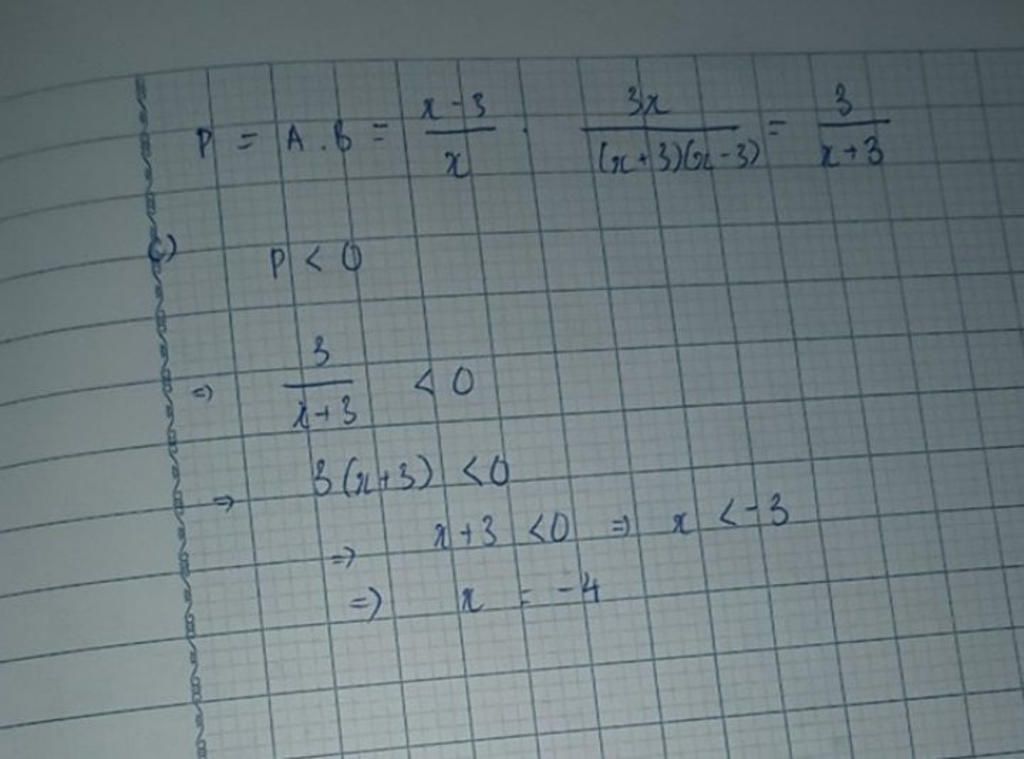 P = A . B = \frac{x-3}{x} . \frac{3x}{(x+3)(x-3)} = \frac{3}{x+3}
c) P < 0
=) \frac{3}{x+3} < 0
=) 3(x+3) < 0
=) x+3 < 0 =) x < -3
=) x = -4